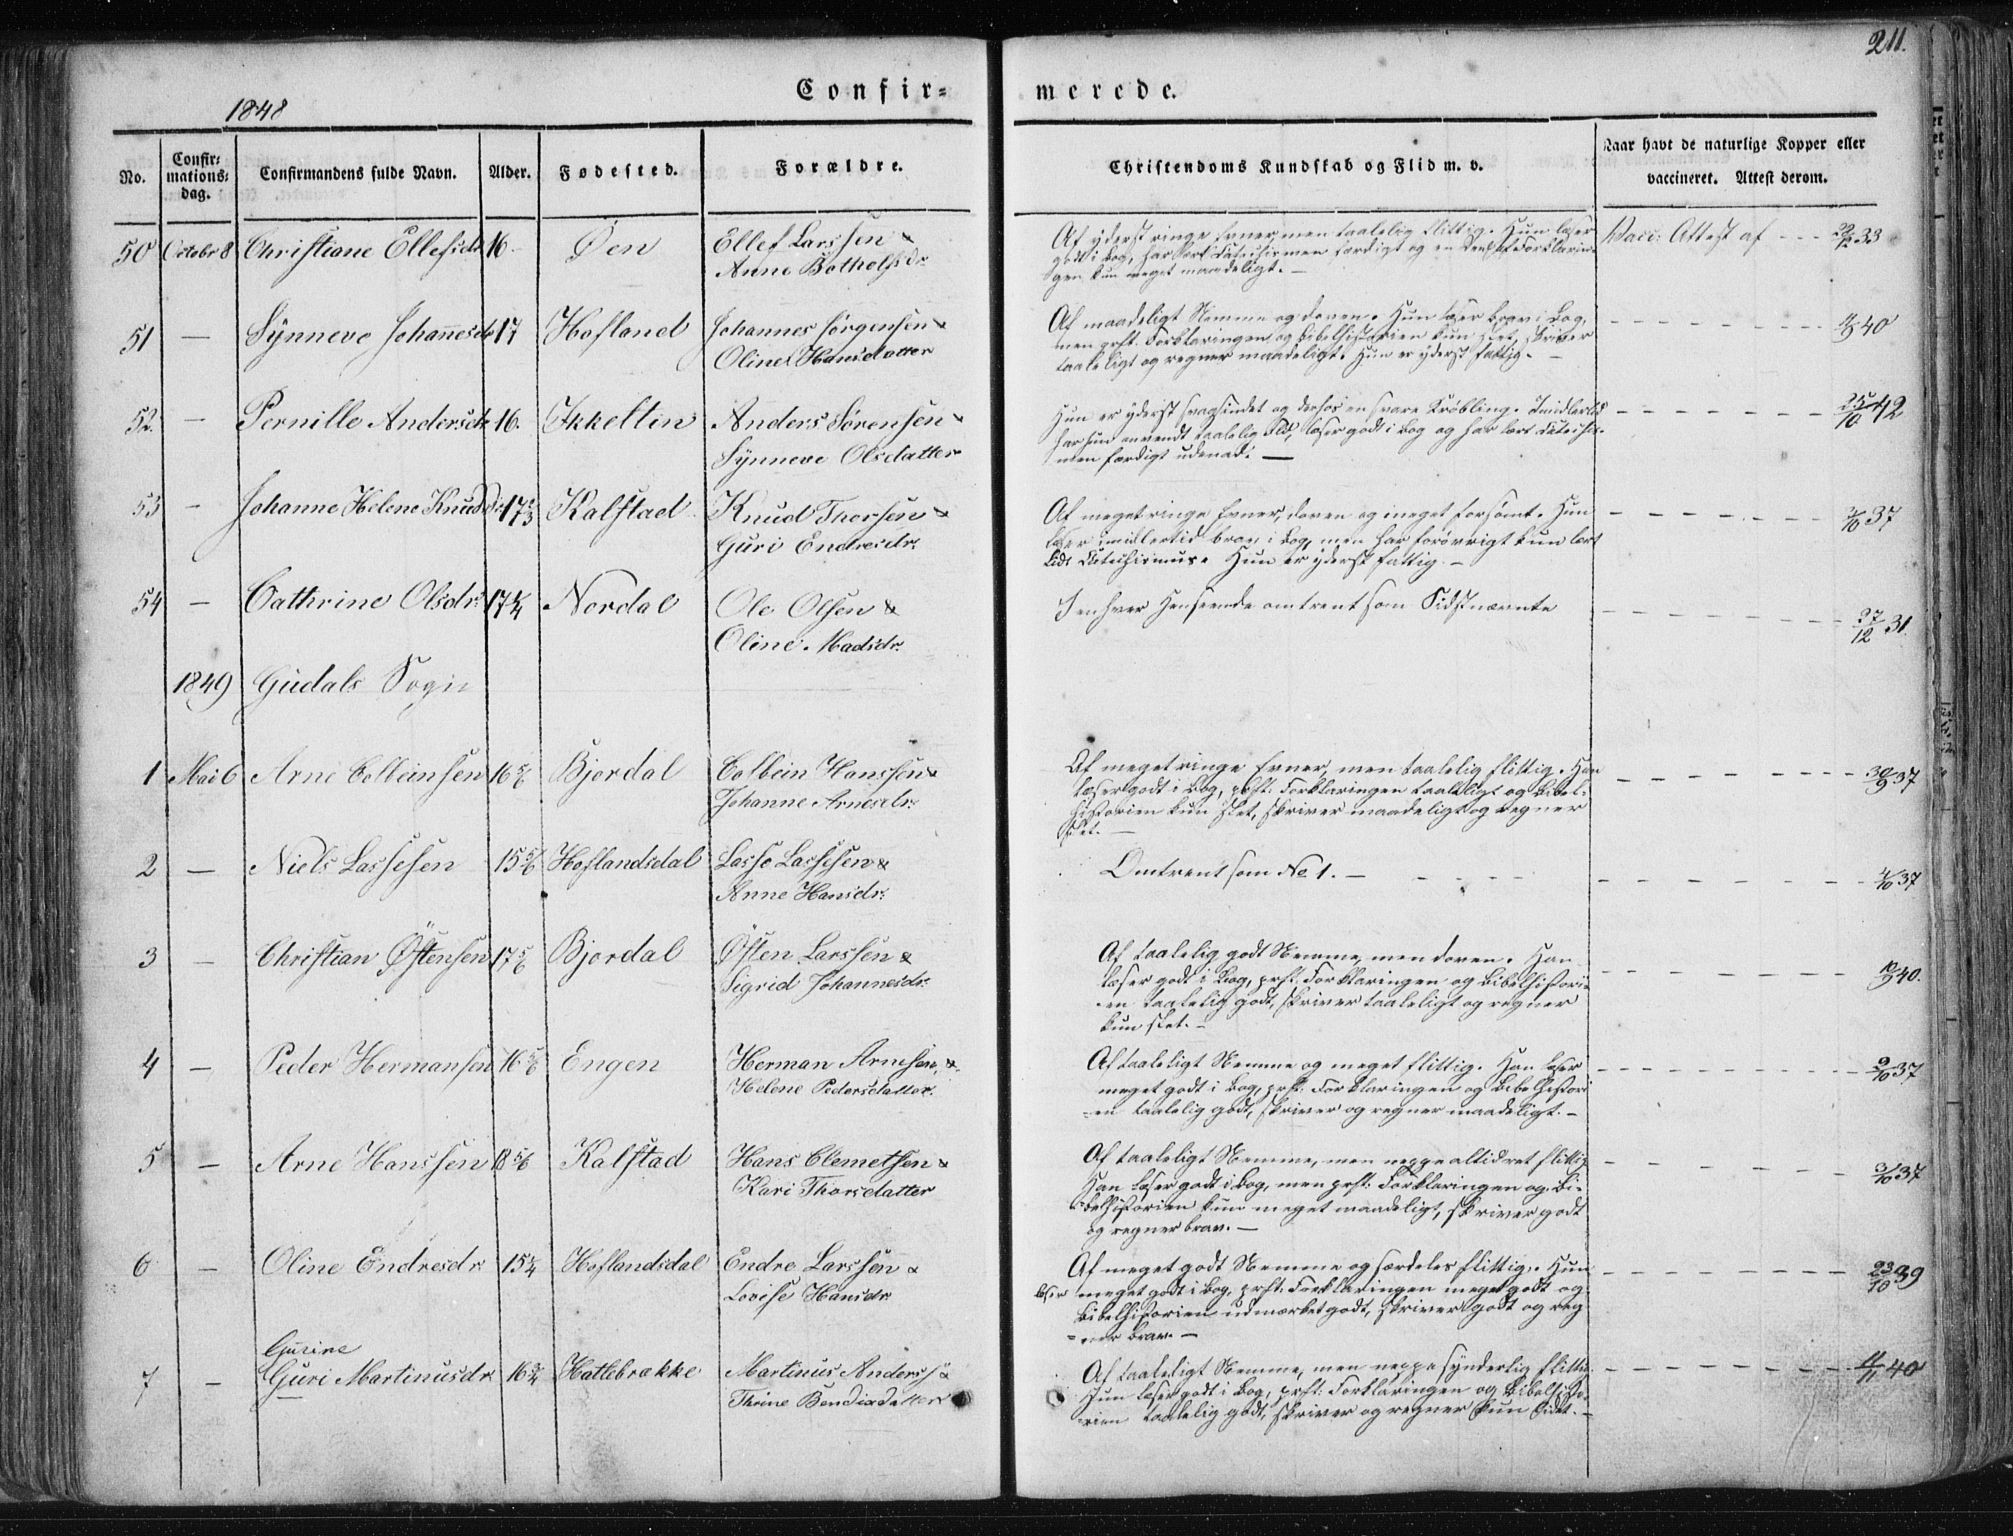 211.
Confir=
merede.
1848
No.
Confir=
mations=
dag.
Confirmandens fulde Navn.
Alder.
Fødested.
Forældre.
Christendoms Kundskab og Flid m. v.
Naar havt de naturlige Kopper eller
vaccineret. Attest derom.
50 Octobr 8 Christiane Ellefsdr 16 Øen Ellef Larssen &
Anne Botholfsdr
Af yderst ringe Evner men taalelig flittig. Hun læser
godt i Bog, har lært Catechismen færdigt og en Deel af Forklarin-
gen kun meget maadeligt. —
Vacc: Attest af - - - 33
51 — Synneve Johannesdr 17 Hofland Johannes Jørgensen &
Oline Hansdatter
Af maadeligt Nemme og doven. Hun læser brav i Bog,
men prst. Forklaringen og Bibelhistorien kun slet, skriver
taaleligt og regner maadeligt. Hun er yderst fattig. —
40
52. — Pernille Andersdr 16. Ikkeltin Anders Sørensen &
Synneve Olsdatter
Hun er yderst svagsindet og derhos en svare Krøbling. Imidlertid
har hun anvendt taalelig Flid, læser godt i Bog og har lært Catechis-
men færdigt udenad. —
25/10 42
53 — Johanne Helene Knudsdr 17 Kalstad Knud Thorsen &
Guri Endresdr.
Af meget ringe Evner, doven og meget forsømt. Hun
læser imidlertid brav i Bog, men har forøvrigt kun lært
Lidt Catechismus. Hun er yderst fattig. —
37
54 — Cathrine Olsdr. 17 1/4 Nordal Ole Olsen &
Oline Madsdr.
I enhver Henseende omtrent som Sidstnævnte
27/12 31.
1849 Gudals Sogn
1 Mai 6 Arne Colbeinsen 16 5/6 Bjordal Colbein Hanssen &
Johanne Arnesdr.
Af meget ringe Evner, men taalelig flittig. Han
læser godt i Bog, prst. Forklaringen taaleligt og Bibel-
historien kun slet, skriver maadeligt og regner
slet. —
30/9 37
2 — Niels Lassesen 15 5/6 Hoflandsdal Lasse Lassesen &
Anne Hansdr.
Omtrent som No 1. —
4/10 37
3 — Christian Østensen 17 5/6 Bjordal Østen Larssen &
Sigrid Johannesdr.
Af taalelig godt Nemme, men doven. Han
læser godt i Bog, prst. Forklaringen og Bibelhistori-
en taalelig godt, skriver taaleligt og regner
kun slet. —
40.
4 — Peder Hermansen 16 5/6 Engen Herman Arnesen &
Helene Pedersdatter.
Af taaleligt Nemme og meget flittig. Han læser
meget godt i Bog, prst. Forklaringen og Bibelhistori
-en taalelig godt, skriver og regner maadeligt. —
37
5 — Arne Hanssen 18 5/6 Kalstad Hans Clemetsen &
Kari Thorsdatter
Af taaleligt Nemme, men neppe altid ret flittig
Han læser godt i Bog, men prst. Forklaringen og Bi-
belhistorien kun meget maadeligt, skriver godt
og regner brav. —
37
6 — Oline Endresdr. 15 3/4 Hoflandsdal Endre Larssen &
Lovise Hansdr.
Af meget godt Nemme og særdeles flittig. Hun
læser meget godt i Bog, prst. Forklaringen meget godt og
Bibelhistorien udmærket godt, skriver godt og reg
-ner brav. —
23/10 39
Gurine
7 — Guri Martinusdr. 16 3/4 Hattebrække Martinus Anderss. &
Thrine Bendixdatter
Af taaleligt Nemme, men neppe synderlig flittig.
Hun læser godt i Bog, prst. Forklaringen og Bibelhisto-
-rien taalelig godt, skriver og regner kun Lidet. —
11/11 40